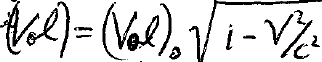 (Vol) = (Vol)₀ √(1 - V²/c²)